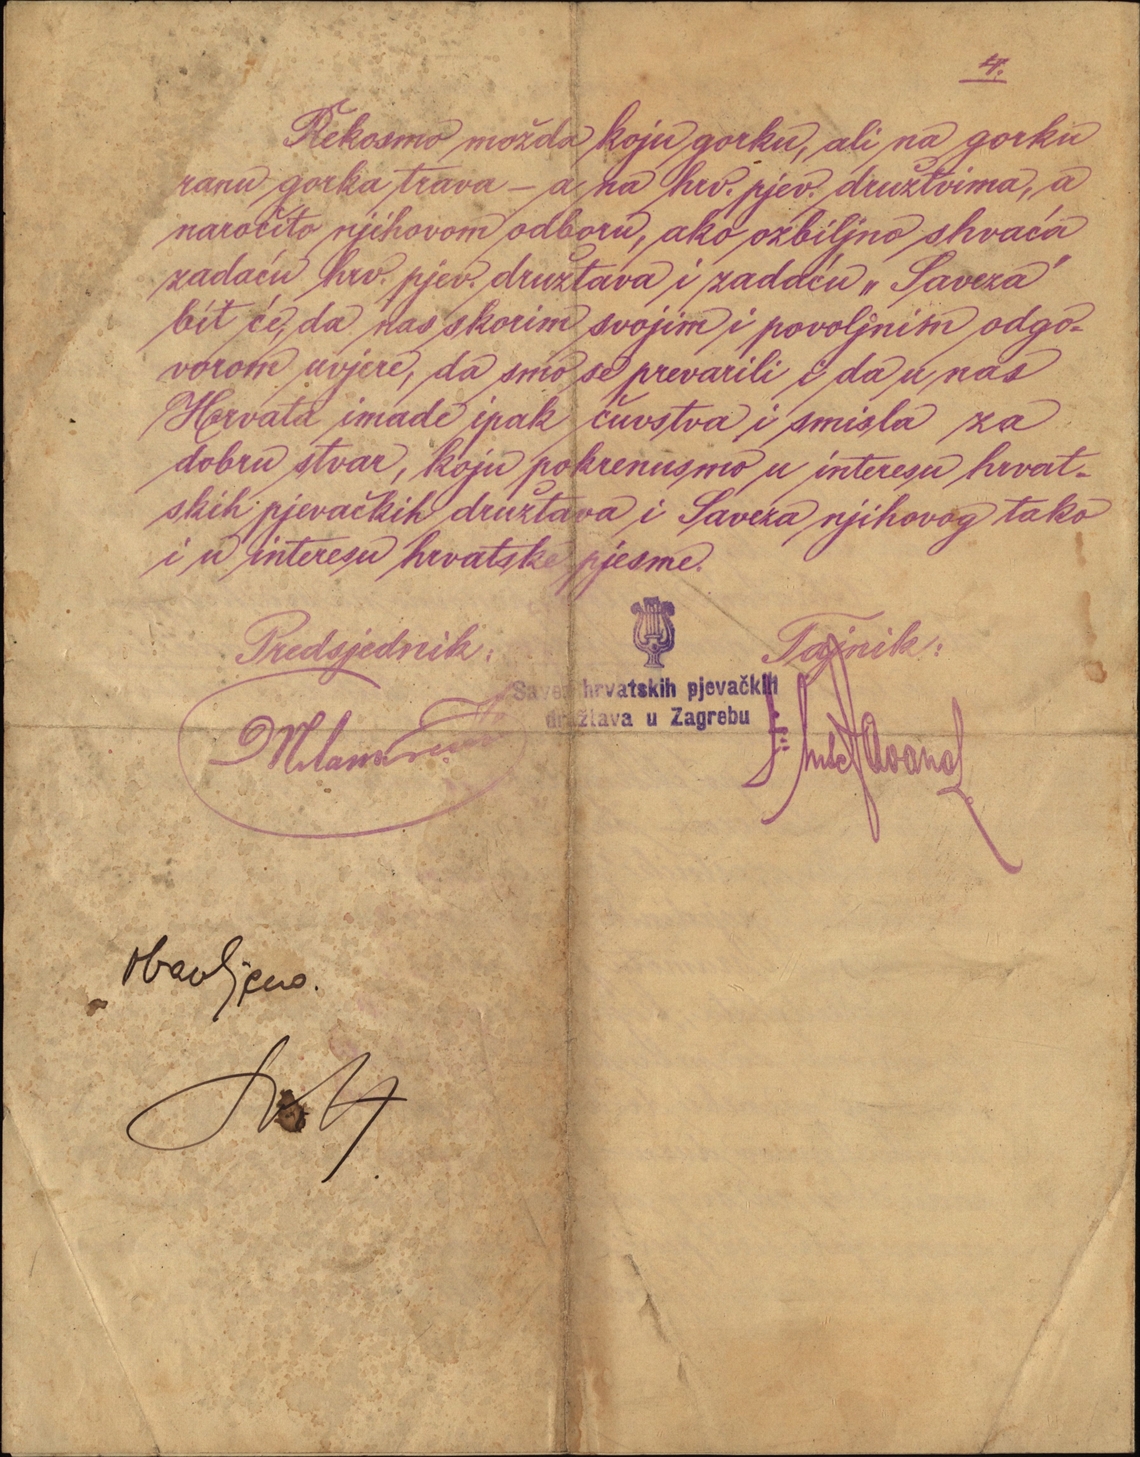 4.
Rekosmo možda koju gorku, ali na gorku
ranu gorka trava – a na hrv. pjev. družtvima, a
naročito njihovom odboru, ako ozbiljno shvaća
zadaću hrv. pjev. družtava i zadaću „Saveza"
bit će, da nas skorim svojim i povoljnim odgo-
vorom uvjere, da smo se prevarili i da u nas
Hrvata imade ipak čuvstva i smisla za
dobru stvar, koju pokrenusmo u interesu hrvat-
skih pjevačkih družtava i Saveza njihovog tako
i u interesu hrvatske pjesme.
Predsjednik:
Tajnik:
Savez hrvatskih pjevačkih
družtava u Zagrebu
Obavljeno.